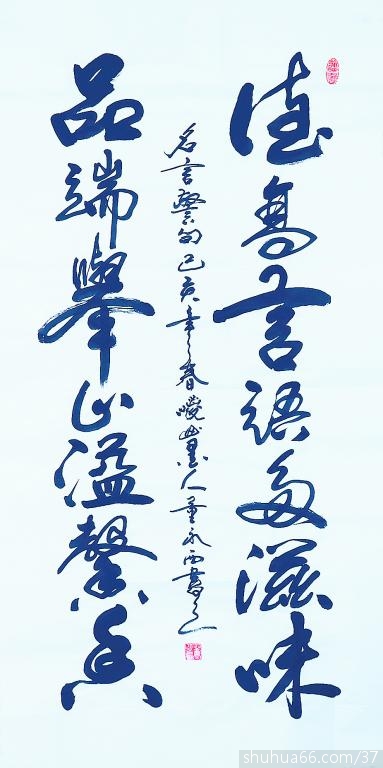 德高言語多滋味
品端舉止溢馨香
名言警句己亥年之春曉墨人董永西書之
shuhua66.com/37